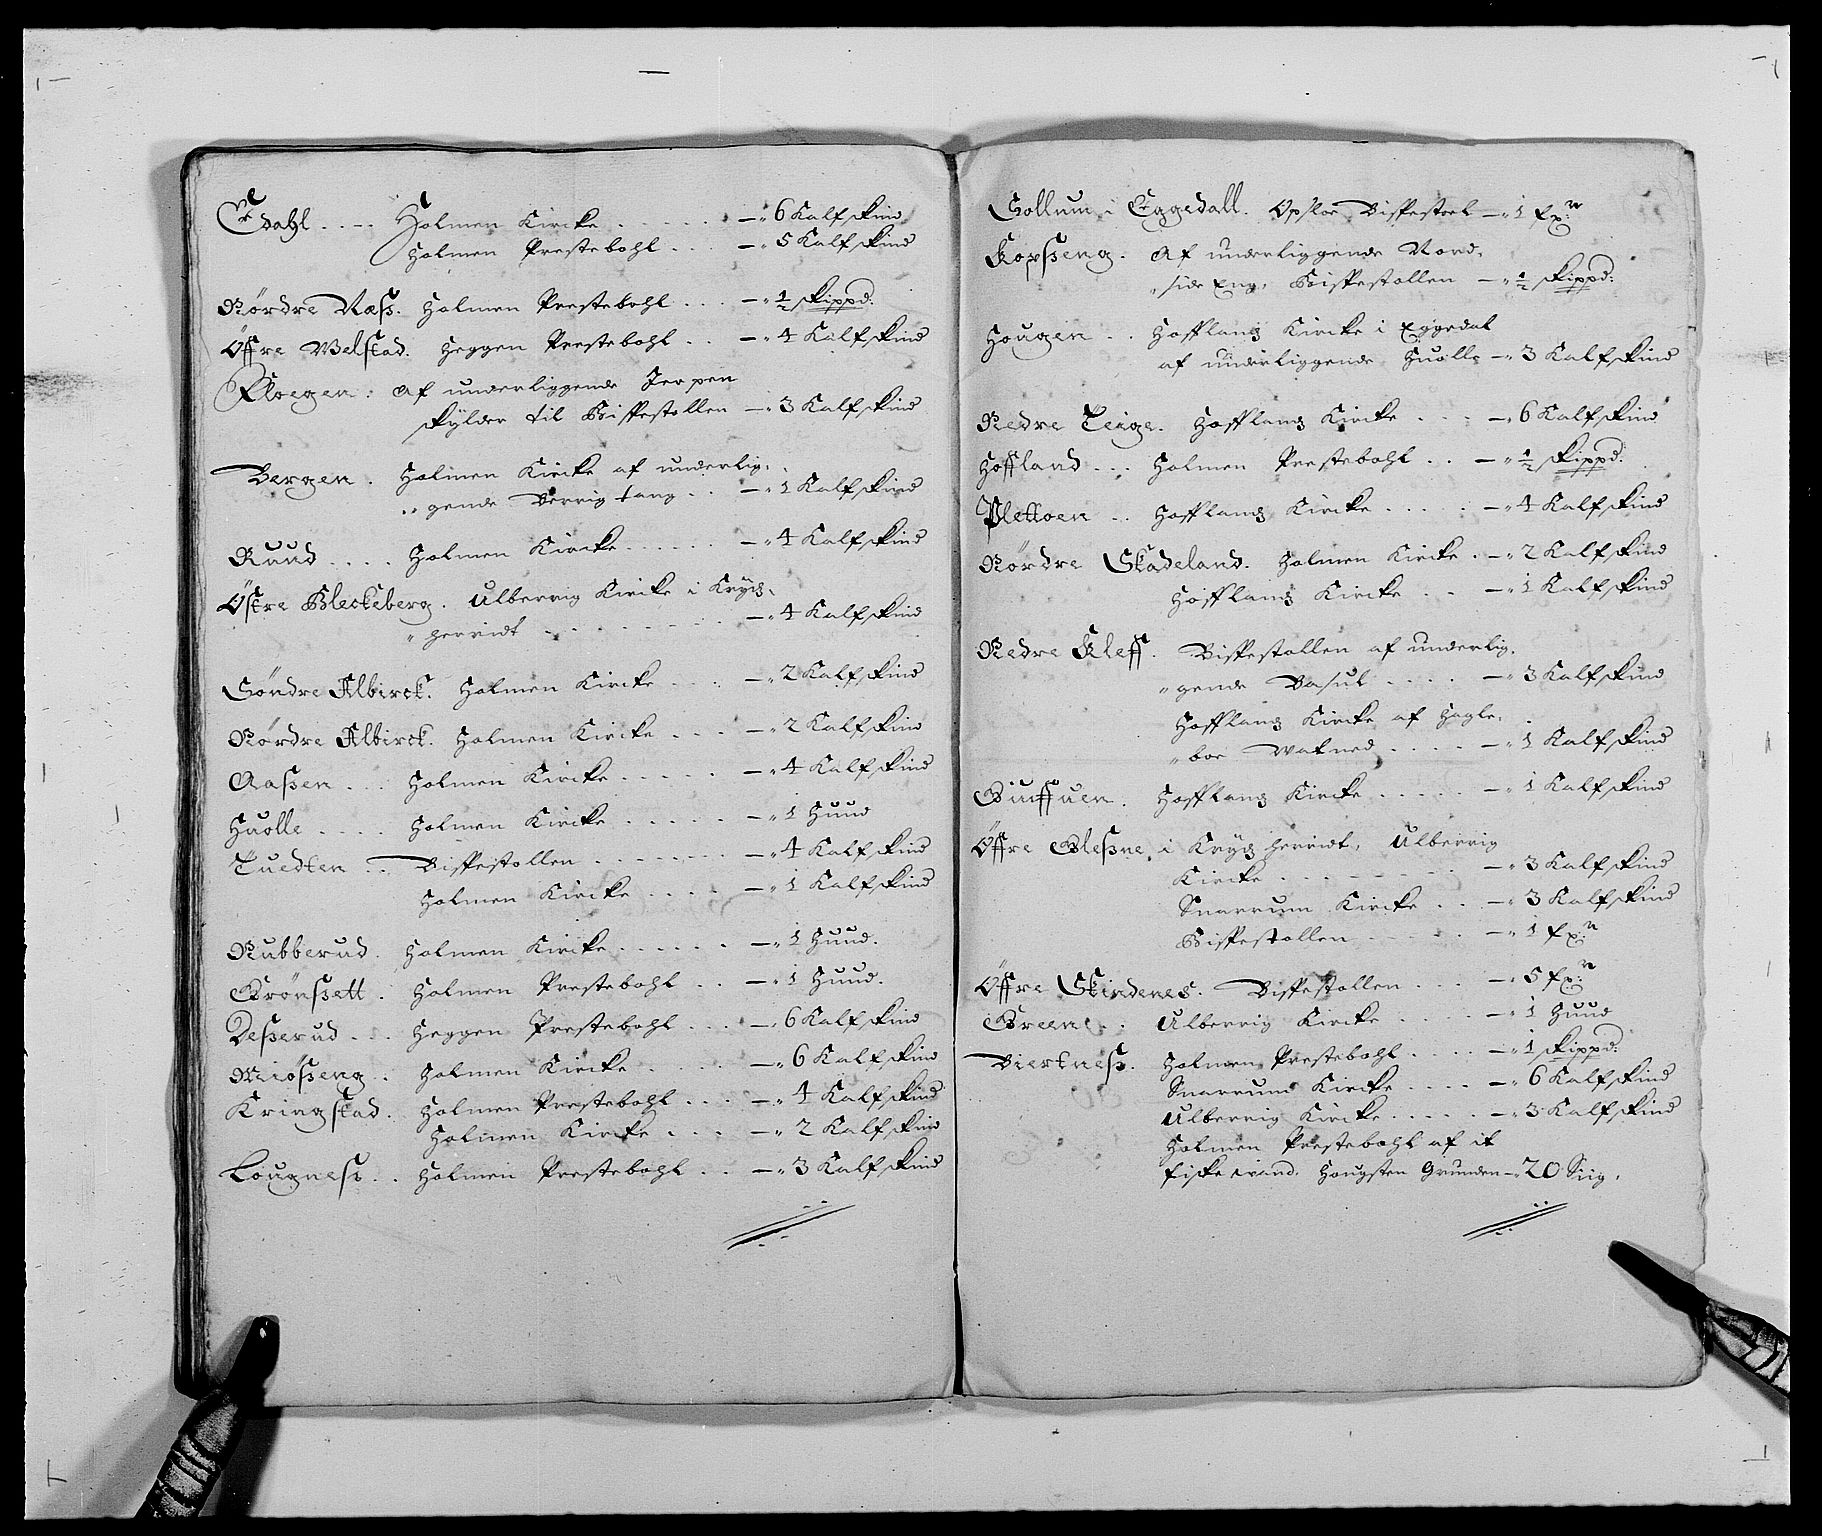 Edahl .... Holmen Kircke ...... — 6 Kalfskind
Holmen Prestebohl ... — 5 Kalfskind
Nördre Næss. Holmen Prestebohl ... — ½ skippd:
Öffre Welstad. Heggen Prestebohl .. — 4 Kalfskind
Kloegen: Af underliggende Jerpen
skylder til Bispestollen — 3 Kalfskind
Bergen. Holmen Kircke af underlig,
gende Berrig tang .. — 1 Kalfskind
Ruud .... Holmen Kircke ...... — 4 Kalfskind
Östre Bleckeberg. Ulberrig Kircke i Kryds,
herridt ......... — 4 Kalfskind
Söndre Albirck. Holmen Kircke .... — 2 Kalfskind
Nördre Albirck. Holmen Kircke ... — 2 Kalfskind
Aassen ... Holmen Kircke ..... — 4 Kalfskind
Huolle .... Holmen Kircke ..... — 1 Huud
Tuedten .. Bispestollen ....... — 4 Kalfskind
Holmen Kircke .... — 1 Kalfskind
Rubberud. Holmen Kircke ...... — 1 Huud.
Grönssett. Holmen Prestebohl .. — 1 Huud.
Desserud ... Heggen Prestebohl ... — 6 Kalfskind
Miösseng .. Holmen Kircke ..... — 6 Kalfskind
Kringstad. Holmen Prestebohl ... — 4 Kalfskind
Holmen Kircke .... — 2 Kalfskind
Lougness .. Holmen Prestebohl .. — 3 Kalfskind
Sollum i Eggedall. Opsloe Bispestoel — 1 fx:n
Kopsseng. Af underliggende Nord,
side Eng, Bispestollen — ½ skippd:
Hougen .. Hofflands Kircke i Eggedal
af underliggende Huolle — 3 Kalfskind
Nedre Teige. Hofflands Kircke .... — 6 Kalfskind
Hoffland ... Holmen Prestebohl .. — ½ skippd:
Plettoen .. Hofflands Kircke ..... — 4 Kalfskind
Nördre Skadeland. Holmen Kircke . — 2 Kalfskind
Hofflands Kircke ... — 1 Kalfskind
Nedre Kleff. Bispestollen af underlig,
gende Basul .... — 3 Kalfskind
Hofflands Kircke af Hagle,
boe .... — 1 Kalfskind
Hofflands Kircke ..... — 1 Kalfskind
Öffre Glessne, i Kryds herridt, Ulberrig
Kircke ........ — 3 Kalfskind
Snarrum Kircke .. — 3 Kalfskind
Bispestollen ..... — 1 fx:n
Öffre Skindenes. Bispestollen ... — 5 fx:n
Green .. Ulberrig Kircke ..... — 1 Huud
Biertness. Holmen Prestebohl .... — 1 skippd:
Snarrum Kircke .... — 6 Kalfskind
Ulberrig Kircke ..... — 3 Kalfskind
Holmen Prestebohl af it
fiske wand, Hougsten Grunden — 20 Siig,